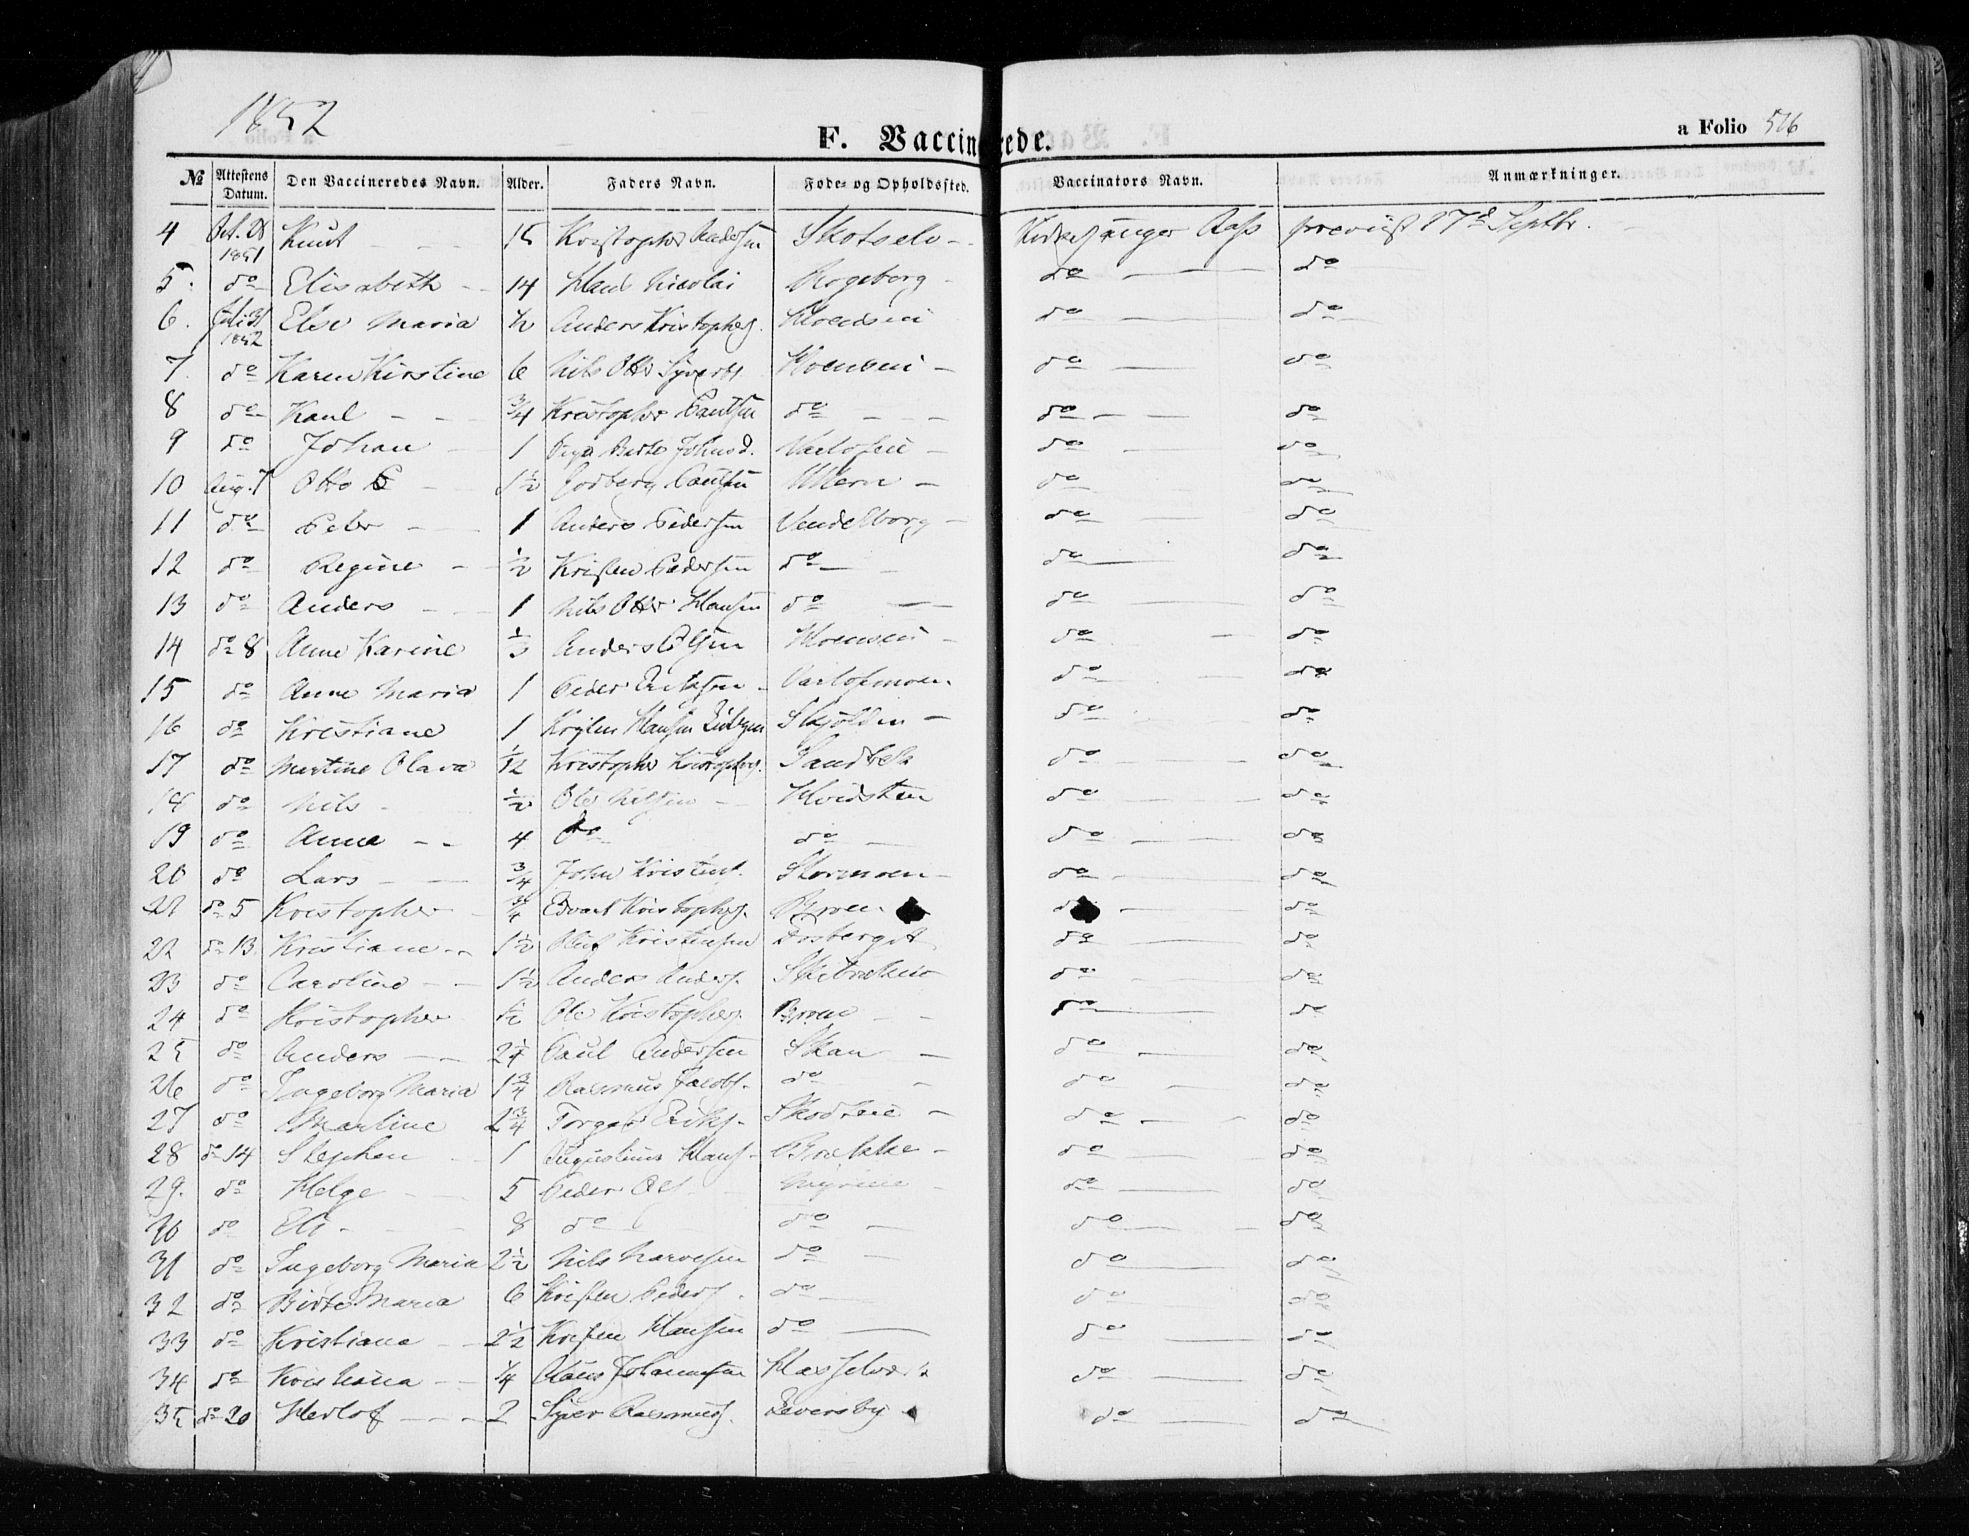 1852
F. Vaccinerede.
a Folio 516
№ Attestens Datum. Den Vaccineredes Navn. Alder. Faders Navn. Føde- og Opholdssted. Vaccinators Navn. Anmærkninger.
4 1851 Knut - - 15 Kristopher Andersen Skotselv - Kirkesanger Aass 17de Septbr.
5. do Elisabeth - - 14 Hans Nicolai do do
6. Juli 31 1852 Else Maria ½ Anders Kristophers. Hoensei do do
7. do Karen Kirstine 6 Nils Hoensei - do do
8 do Karl - - ¾ Kristopher do - - do - do
9 do Johan - 1 Johnsd. - do do
10 Aug. 7 Otto - 1½ - do do
11 do Peter - 1 Anders Pedersen Vendelborg - do do
12 do Regine - ½ Kristen Pedersen do - do do
13 do Anders - - 1 Nils Otter Hansen do - do do
14 do 8 Anne Karine ⅓ Anders Olsen Hoensei - do do
15 do Anne Maria 1 Peder Eriksen - do do
16 do Kristiane 1 Hansen Skjoldin - do do
17 do Martine Olava 1/12 Kristopher Kristophers. do do
18 do Nils - ½ Ole Nilsen - Hvidsten do do
19 do Anna - - 4 do do - do do
20 do Lars - - ¾ John Kristens. Stormoen - do do
21 do 5 Kristopher - ¾ Edvart Kristophers. do do
22 do 13. Kristiane - - 1½ Oluf Kristensen Dosberget do do
23 do Caroline - - 1½ Anders Anders. do do
24 do Kristopher Ole Kristophers. - - do do
25 do Anders - - 2¼ Paul Andersen - do do
26 do Ingeborg Maria 1¾ Rasmus Jacobs. do - do do
27 do Martine 2¾ Torger Eriks. - do do
28 do 14 Stephen - - 1 Augustinus Hans. - Brekke - do do
29. do Helge - - 5 Peder - do do
30 do - - 8 do do - do do
31 do Ingeborg Maria 2½ Nils Narvesen do - do do
32 do Birte Maria 6 Kristen Peders. do - do do
33 do Kristiane - - 2½ Kristen Hansen do - do do
34 do Kristiana - - ¼ Claus Johannesen do do
35 do 20 Herlof - - - 2 Syver Rasmus. do do